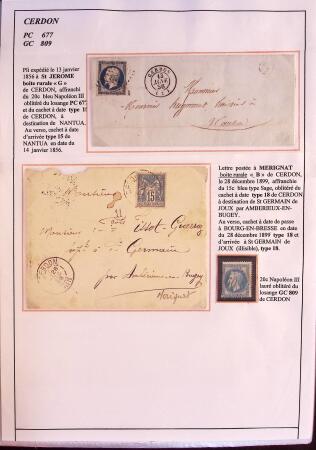 CERDON
PC 677
GC 809
Pli expédié le 13 janvier
1856 à St JEROME
boîte rurale « G »
de CERDON, affranchi
du 20c bleu Napoléon III
oblitéré du losange PC 677
et du cachet à date type 15
de CERDON, à
destination de NANTUA.
Au verso, cachet à date
d'arrivée type 15 de
NANTUA en date du
14 janvier 1856.
CERDON
13
JANV
56
Monsieur
Monsieur Raymond
Nantua
Lettre postée à MERIGNAT
boîte rurale « B » de CERDON,
le 28 décembre 1899, affranchie
du 15c bleu type Sage, oblitéré de
cachet à date type 18 de CERDON
à destination de St GERMAIN de
JOUX par AMBERIEUX-EN-
BUGEY.
Au verso cachet à date de passe
à BOURG-EN-BRESSE en date
du 28 décembre 1899 type 18 et
d'arrivée à St GERMAIN de
JOUX (illisible), type 18.
15
Monsieur
Germain
par Ambérieux en Bugey
Merignat
CERDON
20c Napoléon III
lauré oblitéré du
losange GC 809
de CERDON